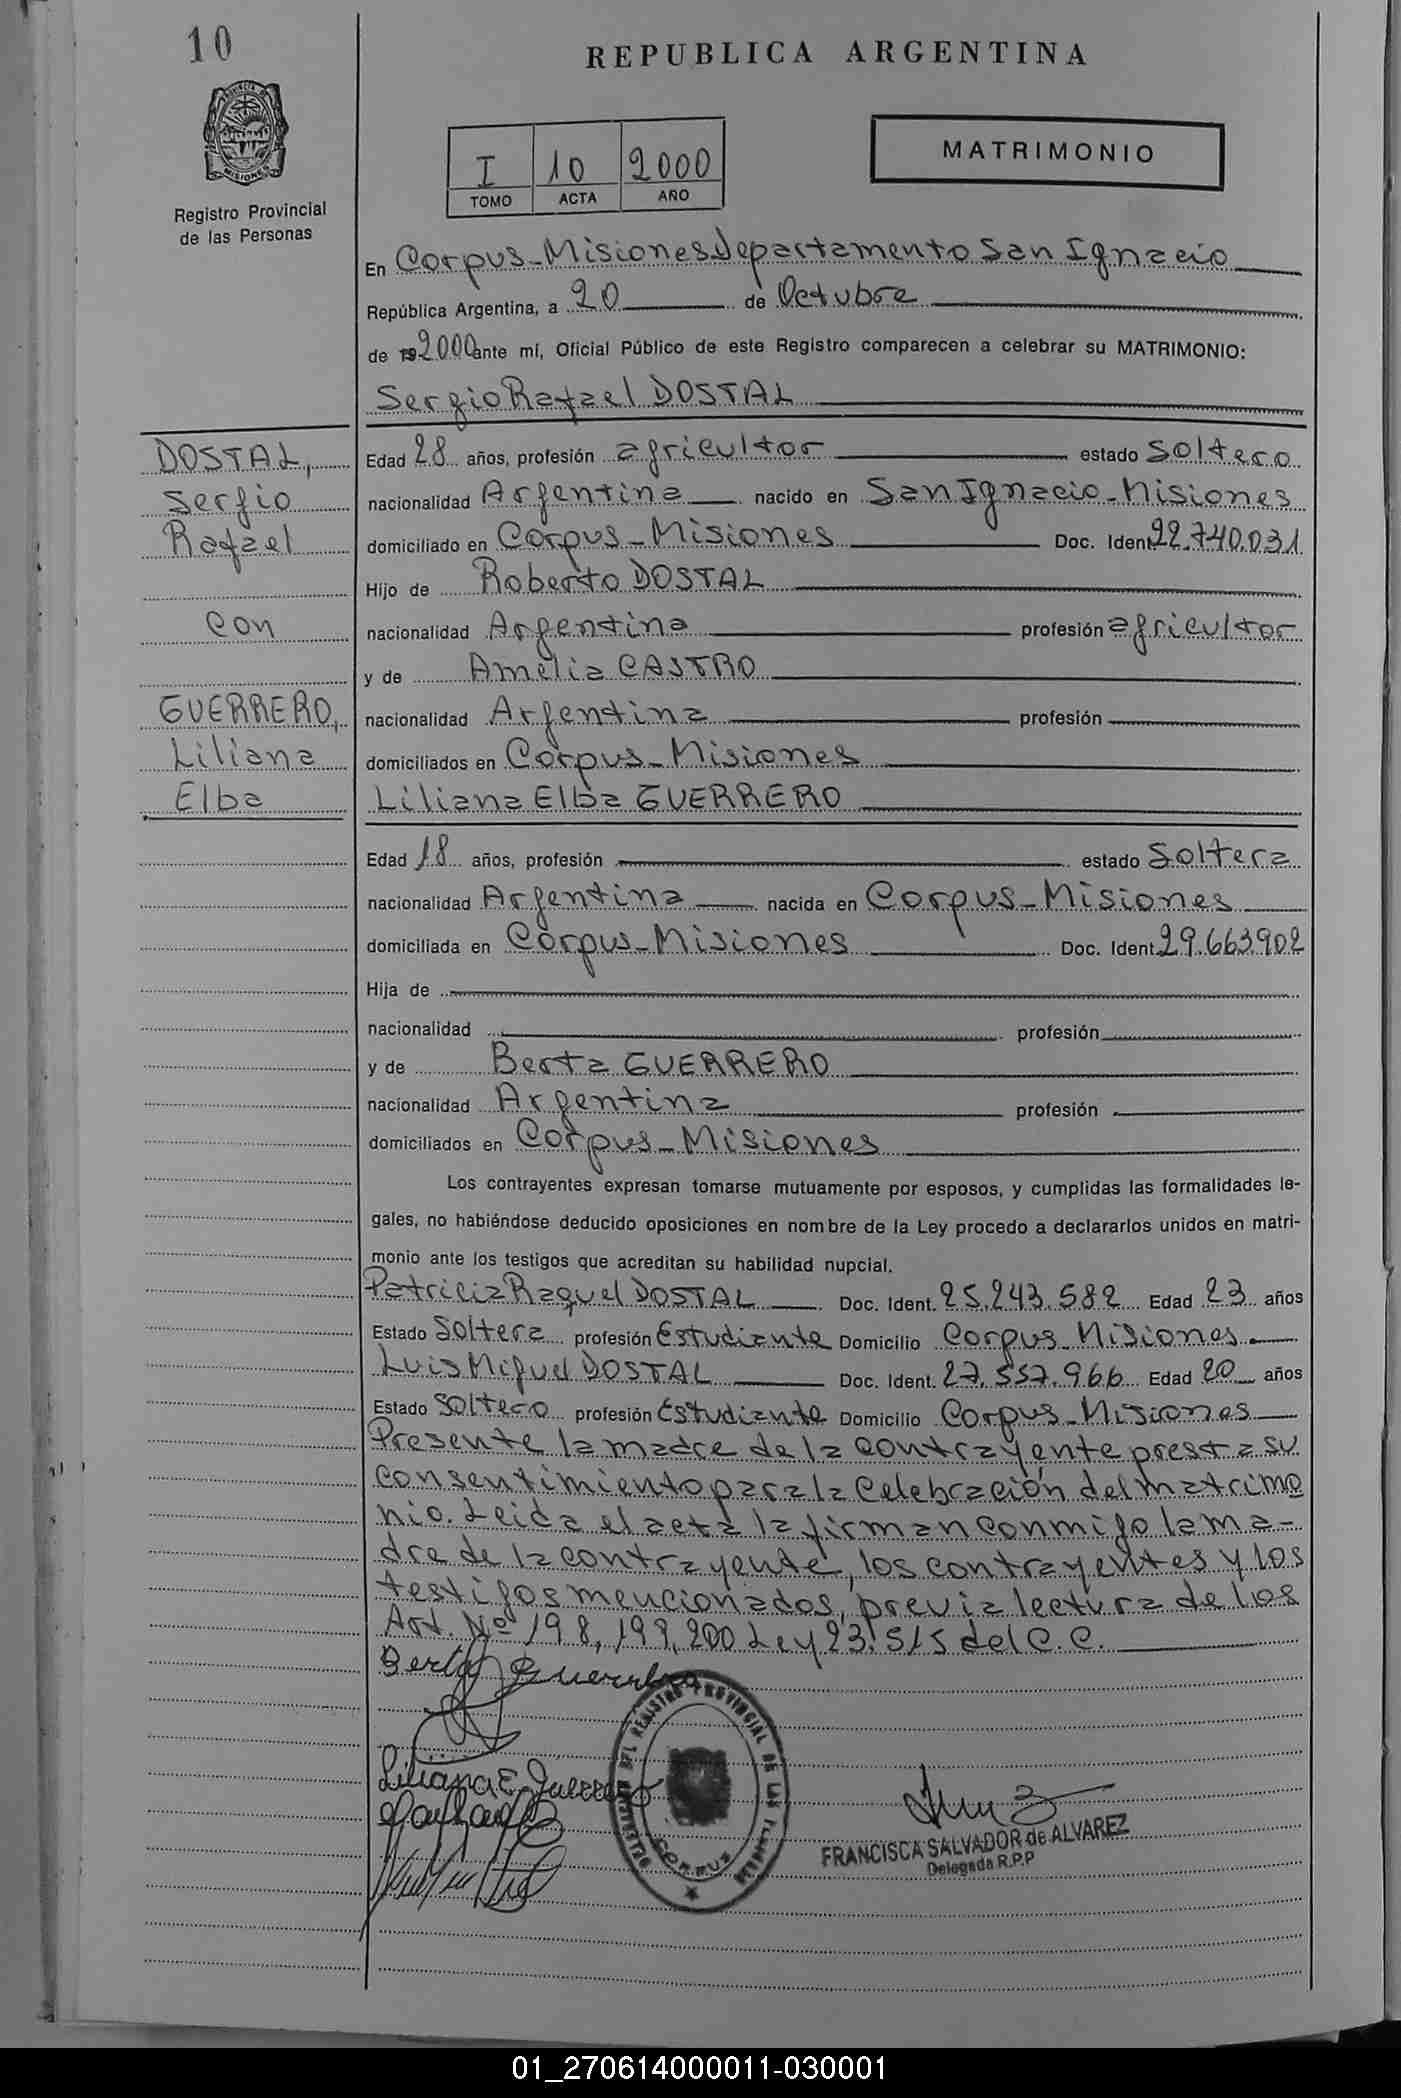 10
REPUBLICA ARGENTINA
MISIONES
Registro Provincial
de las Personas
I 10 2000
TOMO ACTA AÑO
MATRIMONIO
En Corpus-Misiones Departamento San Ignacio
República Argentina, a 20 de Octubre
de 192000 ante mí, Oficial Público de este Registro comparecen a celebrar su MATRIMONIO:
Sergio Rafael DOSTAL
DOSTAL,
Sergio
Rafael
con
GUERRERO,
Liliana
Elba
Edad 28 años, profesión agricultor estado Soltero
nacionalidad Argentina nacido en San Ignacio-Misiones
domiciliado en Corpus-Misiones Doc. Ident. 22.740.031
Hijo de Roberto DOSTAL
nacionalidad Argentina profesión agricultor
y de Amelia CASTRO
nacionalidad Argentina profesión
domiciliados en Corpus-Misiones
Liliana Elba GUERRERO
Edad 18 años, profesión estado Soltera
nacionalidad Argentina nacida en Corpus-Misiones
domiciliada en Corpus-Misiones Doc. Ident. 29.663.902
Hija de
nacionalidad profesión
y de Berta GUERRERO
nacionalidad Argentina profesión
domiciliados en Corpus-Misiones
Los contrayentes expresan tomarse mutuamente por esposos, y cumplidas las formalidades le-
gales, no habiéndose deducido oposiciones en nombre de la Ley procedo a declararlos unidos en matri-
monio ante los testigos que acreditan su habilidad nupcial.
Patricia Raquel DOSTAL Doc. Ident. 25.243.582 Edad 23 años
Estado Soltera profesión Estudiante Domicilio Corpus Misiones
Luis Miguel DOSTAL Doc. Ident. 27.557.966 Edad 20 años
Estado Soltero profesión Estudiante Domicilio Corpus-Misiones
Presente la madre de la contrayente presta su
consentimiento para la Celebración del matrimo
nio. Leida el acta la firman conmigo la ma-
dre de la contrayente, los contrayentes y los
testigos mencionados, previa lectura de los
Art. Nº 198, 199, 200 Ley 23.515 del C.C.
Berta Guerrero
Liliana E. Guerrero
REGISTRO PROVINCIAL DE LAS
CORPUS
FRANCISCA SALVADOR de ALVAREZ
Delegada R.P.P
01_270614000011-030001